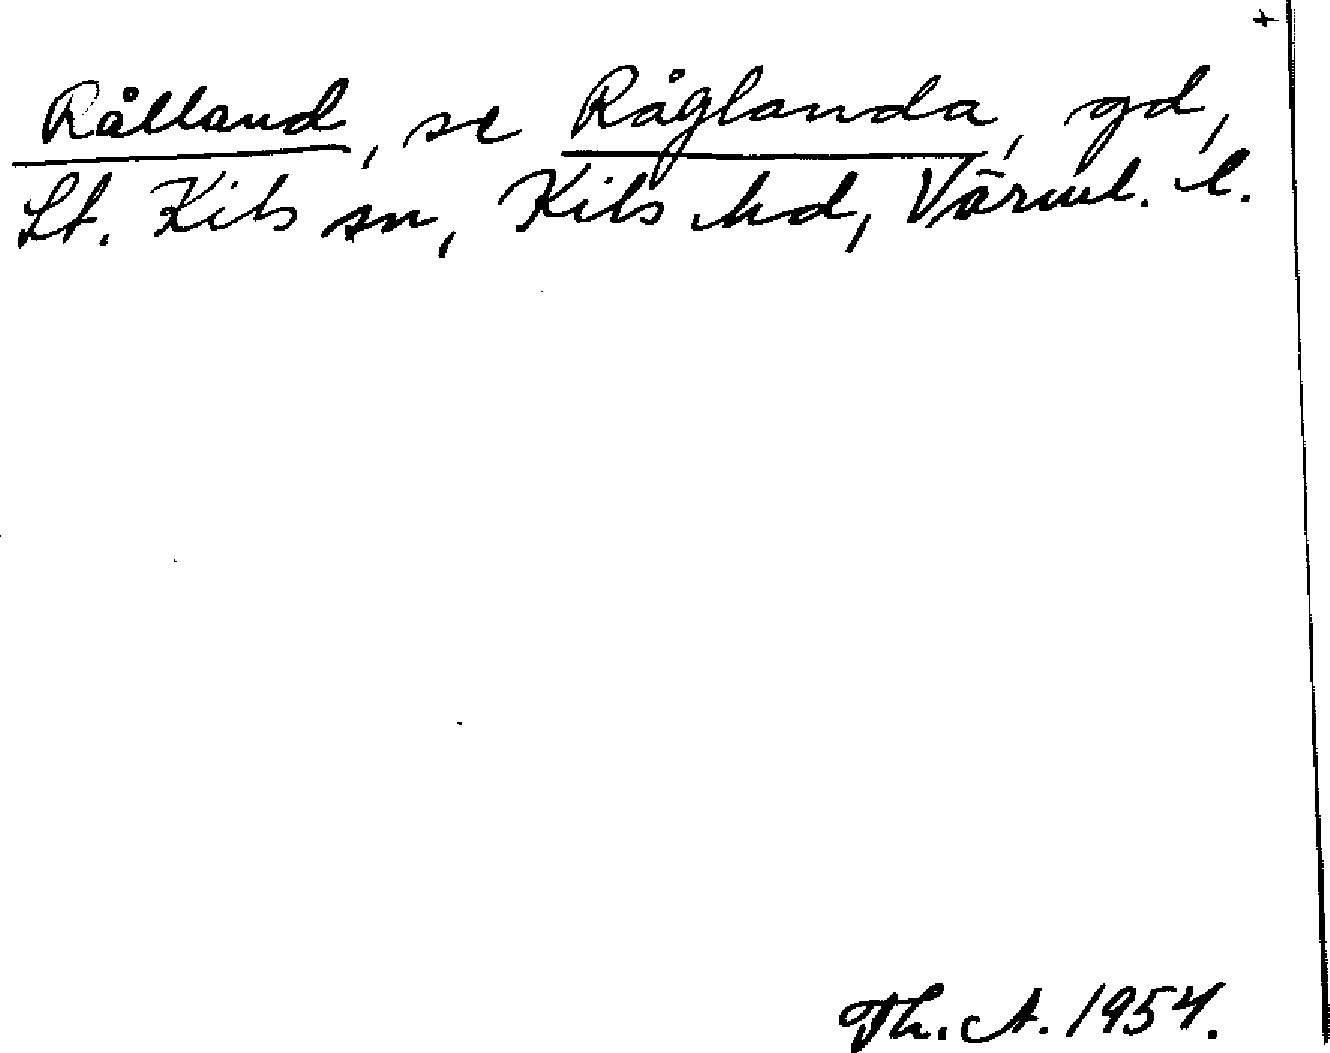 +
Rålland, se Råglanda, gd,
St. Kils sn, Kils hd, Värml. l.
Th. A. 1954.